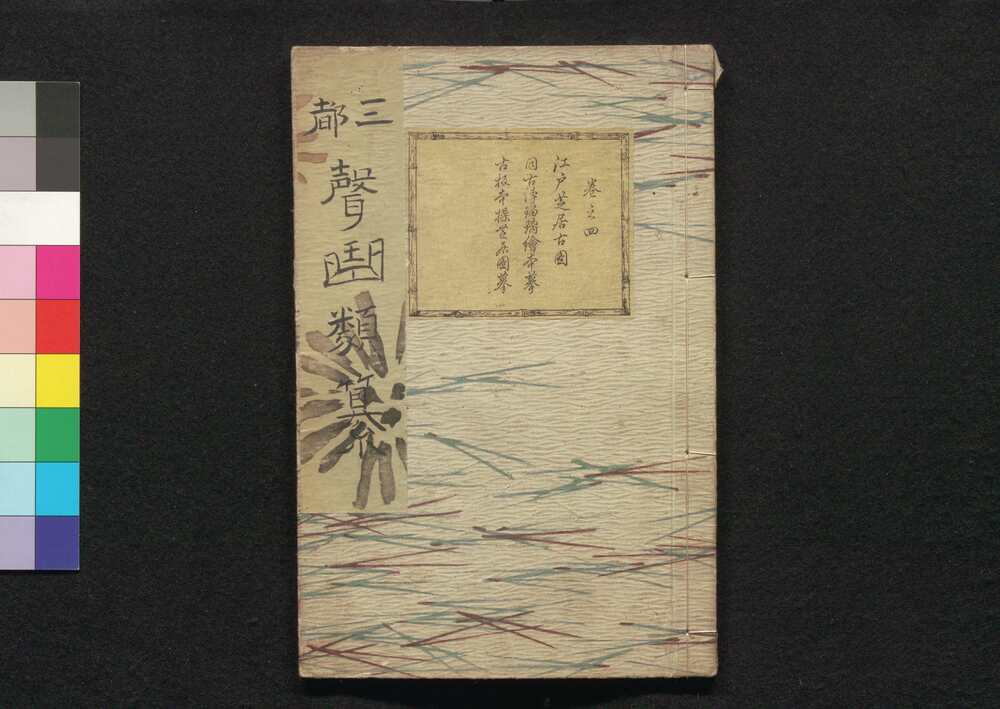 三都聲曲類纂
巻之四
江戸芝居古図
同古浄瑠璃繪本摹
古板本操芝居図摹